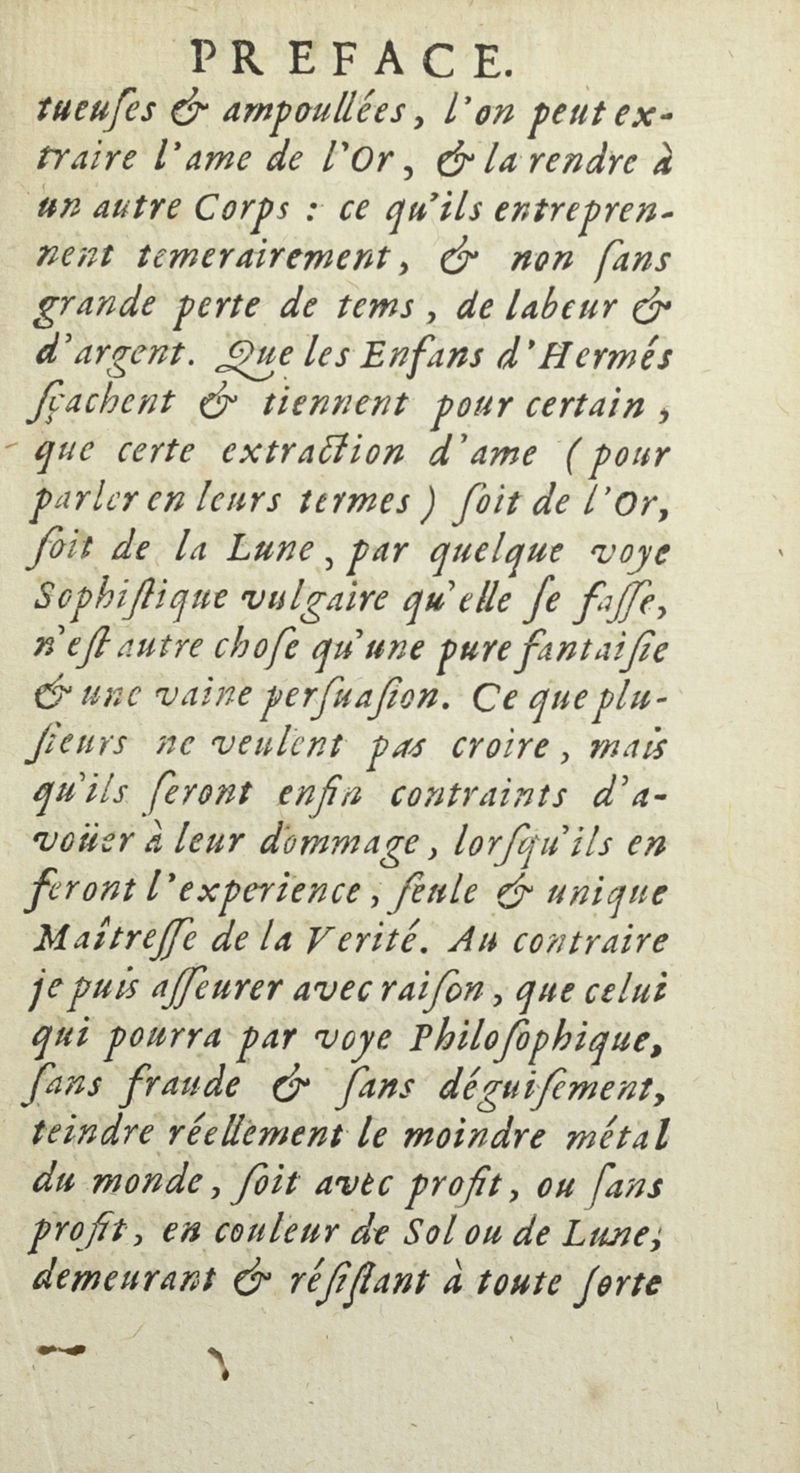 PREFACE.
tueuſes & ampoullées, l'on peut ex-
traire l'ame de l'Or, & la rendre à
un autre Corps : ce qu'ils entrepren-
nent temerairement, & non ſans
grande perte de tems, de labeur &
d'argent. Que les Enfans d'Hermés
ſçachent & tiennent pour certain,
que certe extraction d'ame (pour
parler en leurs termes) ſoit de l'Or,
ſoit de la Lune, par quelque voye
Sophiſtique vulgaire qu'elle ſe faſſe,
n'eſt autre choſe qu'une pure fantaiſie
& une vaine perſuaſion. Ce que plu-
ſieurs ne veulent pas croire, mais
qu'ils ſeront enfin contraints d'a-
voüer à leur dommage, lorſqu'ils en
feront l'experience, ſeule & unique
Maîtreſſe de la Verité. Au contraire
je puis aſſeurer avec raiſon, que celui
qui pourra par voye Philoſophique,
ſans fraude & ſans déguiſement,
teindre réellement le moindre métal
du monde, ſoit avec profit, ou ſans
profit, en couleur de Sol ou de Lune;
demeurant & réſiſtant à toute ſorte